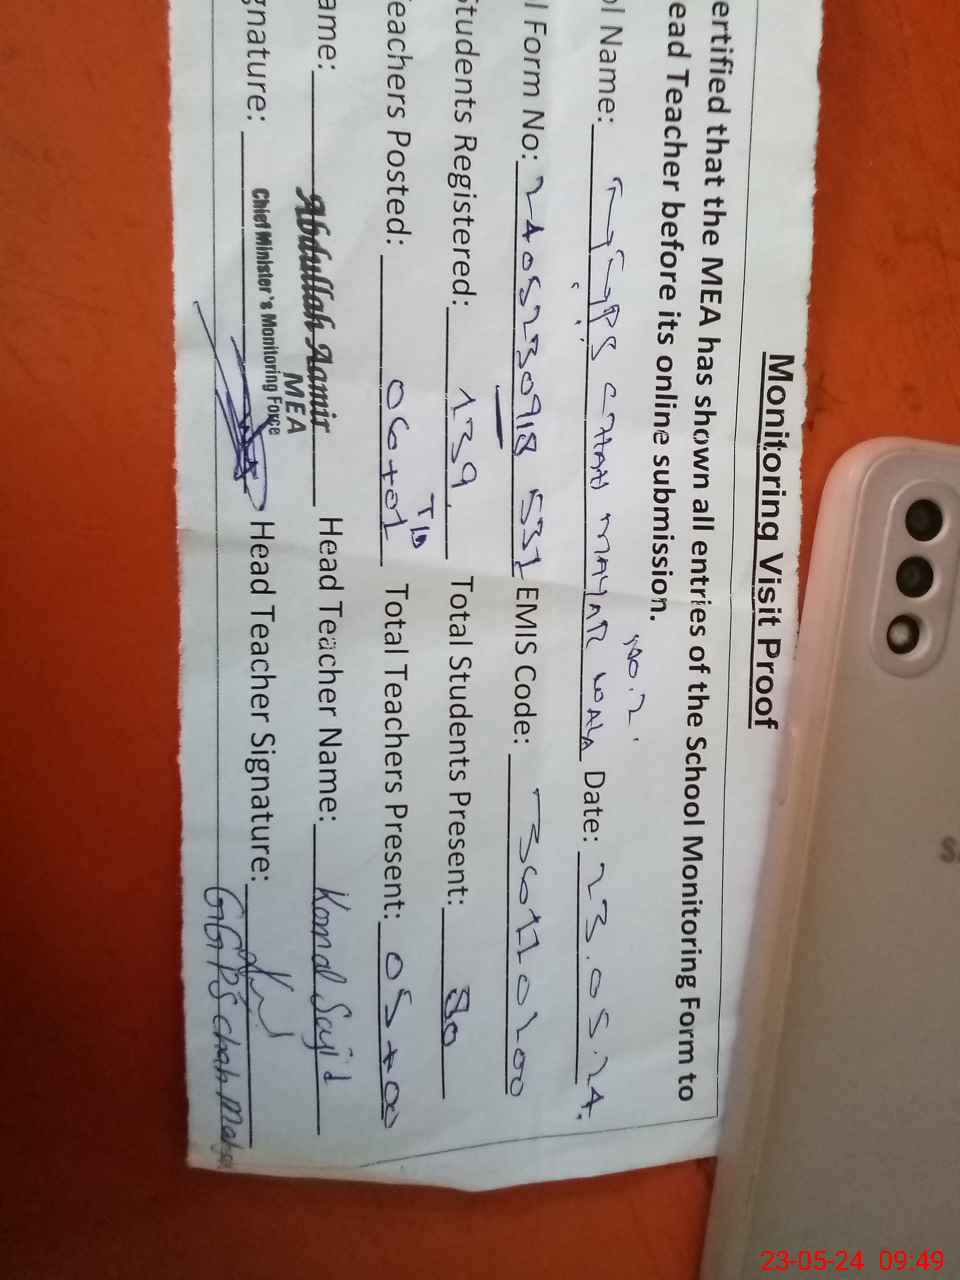 Monitoring Visit Proof
ertified that the MEA has shown all entries of the School Monitoring Form to
ead Teacher before its online submission.
ol Name: GGPS CHAH MAHAR WALA NO.2 Date: 23.05.24.
l Form No: 2405230918 531 EMIS Code: 36110200
Students Registered: 139 Total Students Present: 80
eachers Posted: 06+01 Total Teachers Present: 05+00
ame: Abdullah Aamir Head Teacher Name: Komal Sajid
MEA
Chief Minister's Monitoring Force
gnature: Head Teacher Signature:
GGPS chah
23-05-24 09:49